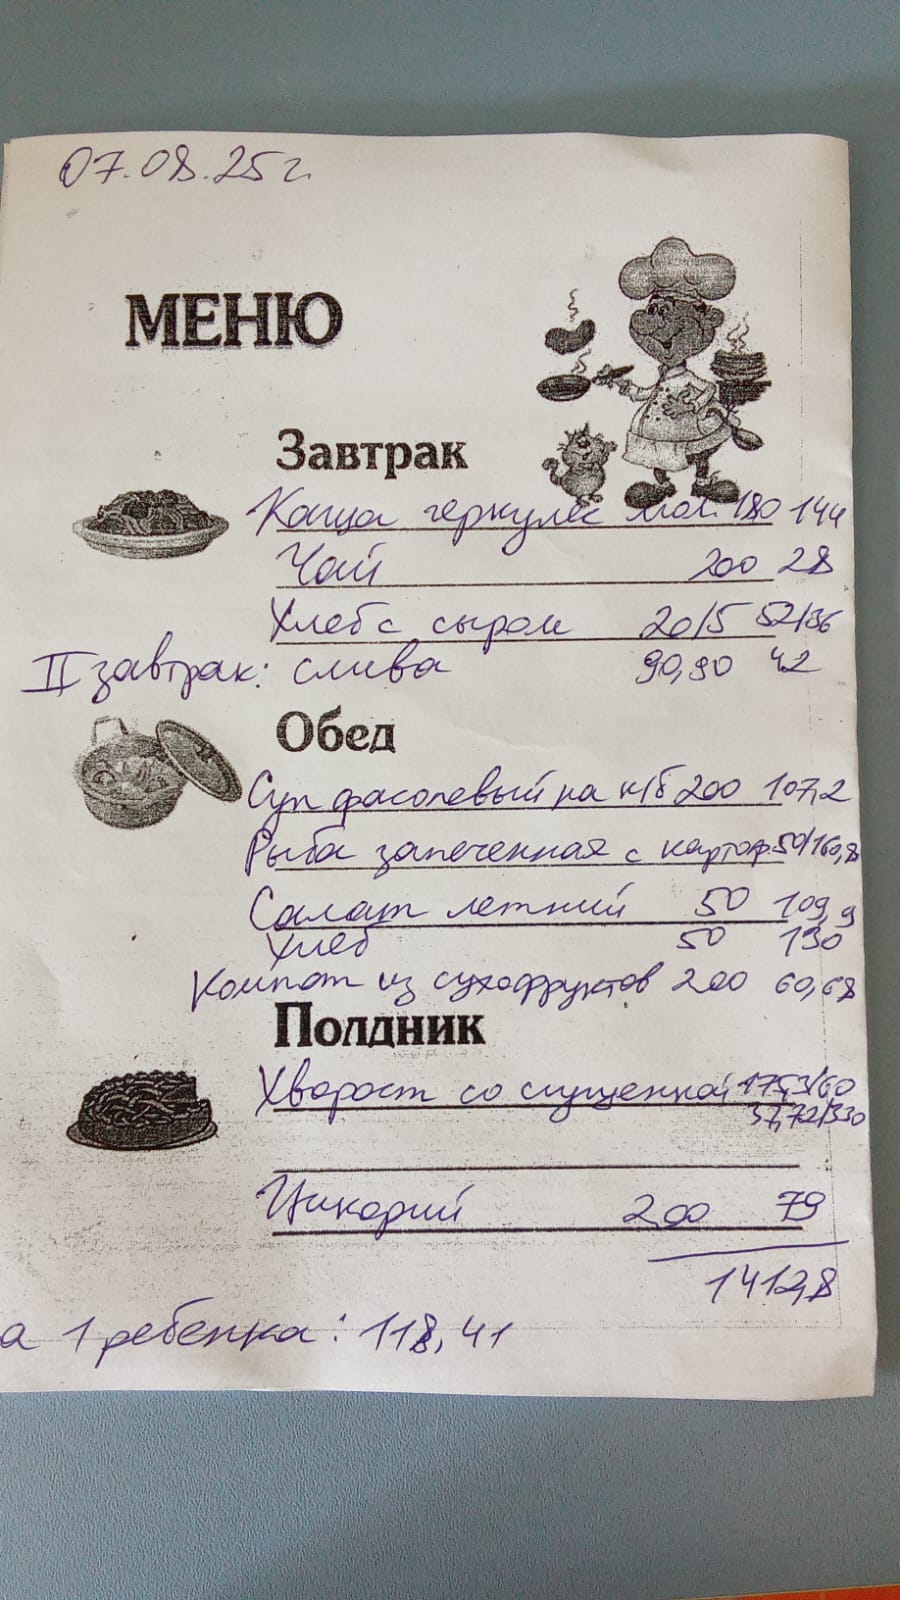 07.08.25г.
МЕНЮ
Завтрак
Каша геркулес мол. 180 144
Чай 200 28
Хлеб с сыром 20/5 52/36
II завтрак: слива 90,90 42
Обед
Суп фасолевый на к/б 200 107,2
Рыба запеченная с картоф. 50/160,8
Салат летний 50 109,9
Хлеб 50 130
Компот из сухофруктов 200 60,68
Полдник
Хворост со сгущенкой 175,3/60
37,72/330
Цикорий 200 79
1412,8
а 1 ребенка: 118,41